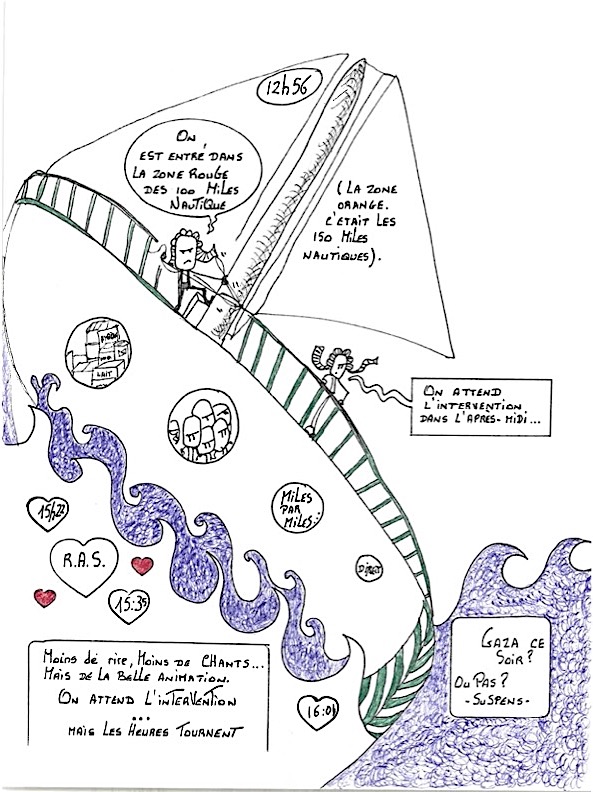 12h56
ON
EST ENTRÉ DANS
LA ZONE ROUGE
DES 100 MILES
NAUTIQUE
(LA ZONE
ORANGE.
C'ÉTAIT LES
150 MILES
NAUTIQUES).
ON ATTEND
L'INTERVENTION
DANS L'APRES-MIDI...
LAIT
MILES
PAR
MILES.
DIRECT
15h22
R.A.S.
15:39
MOINS DE RIRE, MOINS DE CHANTS...
MAIS DE LA BELLE ANIMATION.
ON ATTEND L'INTERVENTION
...
MAIS LES HEURES TOURNENT
16:01
GAZA CE
SOIR?
OU PAS?
-SUSPENS-